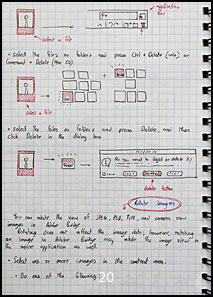 application bar
select a file
• select the files or folders and press Ctrl + Delete (win) or
Command + Delete (Mac OS).
select a file
• select the files or folders and press Delete, and then
click Delete in the dialog box
Do you want to reject or delete it?
delete button
Rotate images
You can rotate the view of JPEG, PSD, TIFF, and camera raw
images in Adobe Bridge.
Rotating does not affect the image data; however, rotating
an image in Adobe Bridge may rotate the image view in
the native application as well.
• Select one or more images in the content area.
• Do one of the following:
20